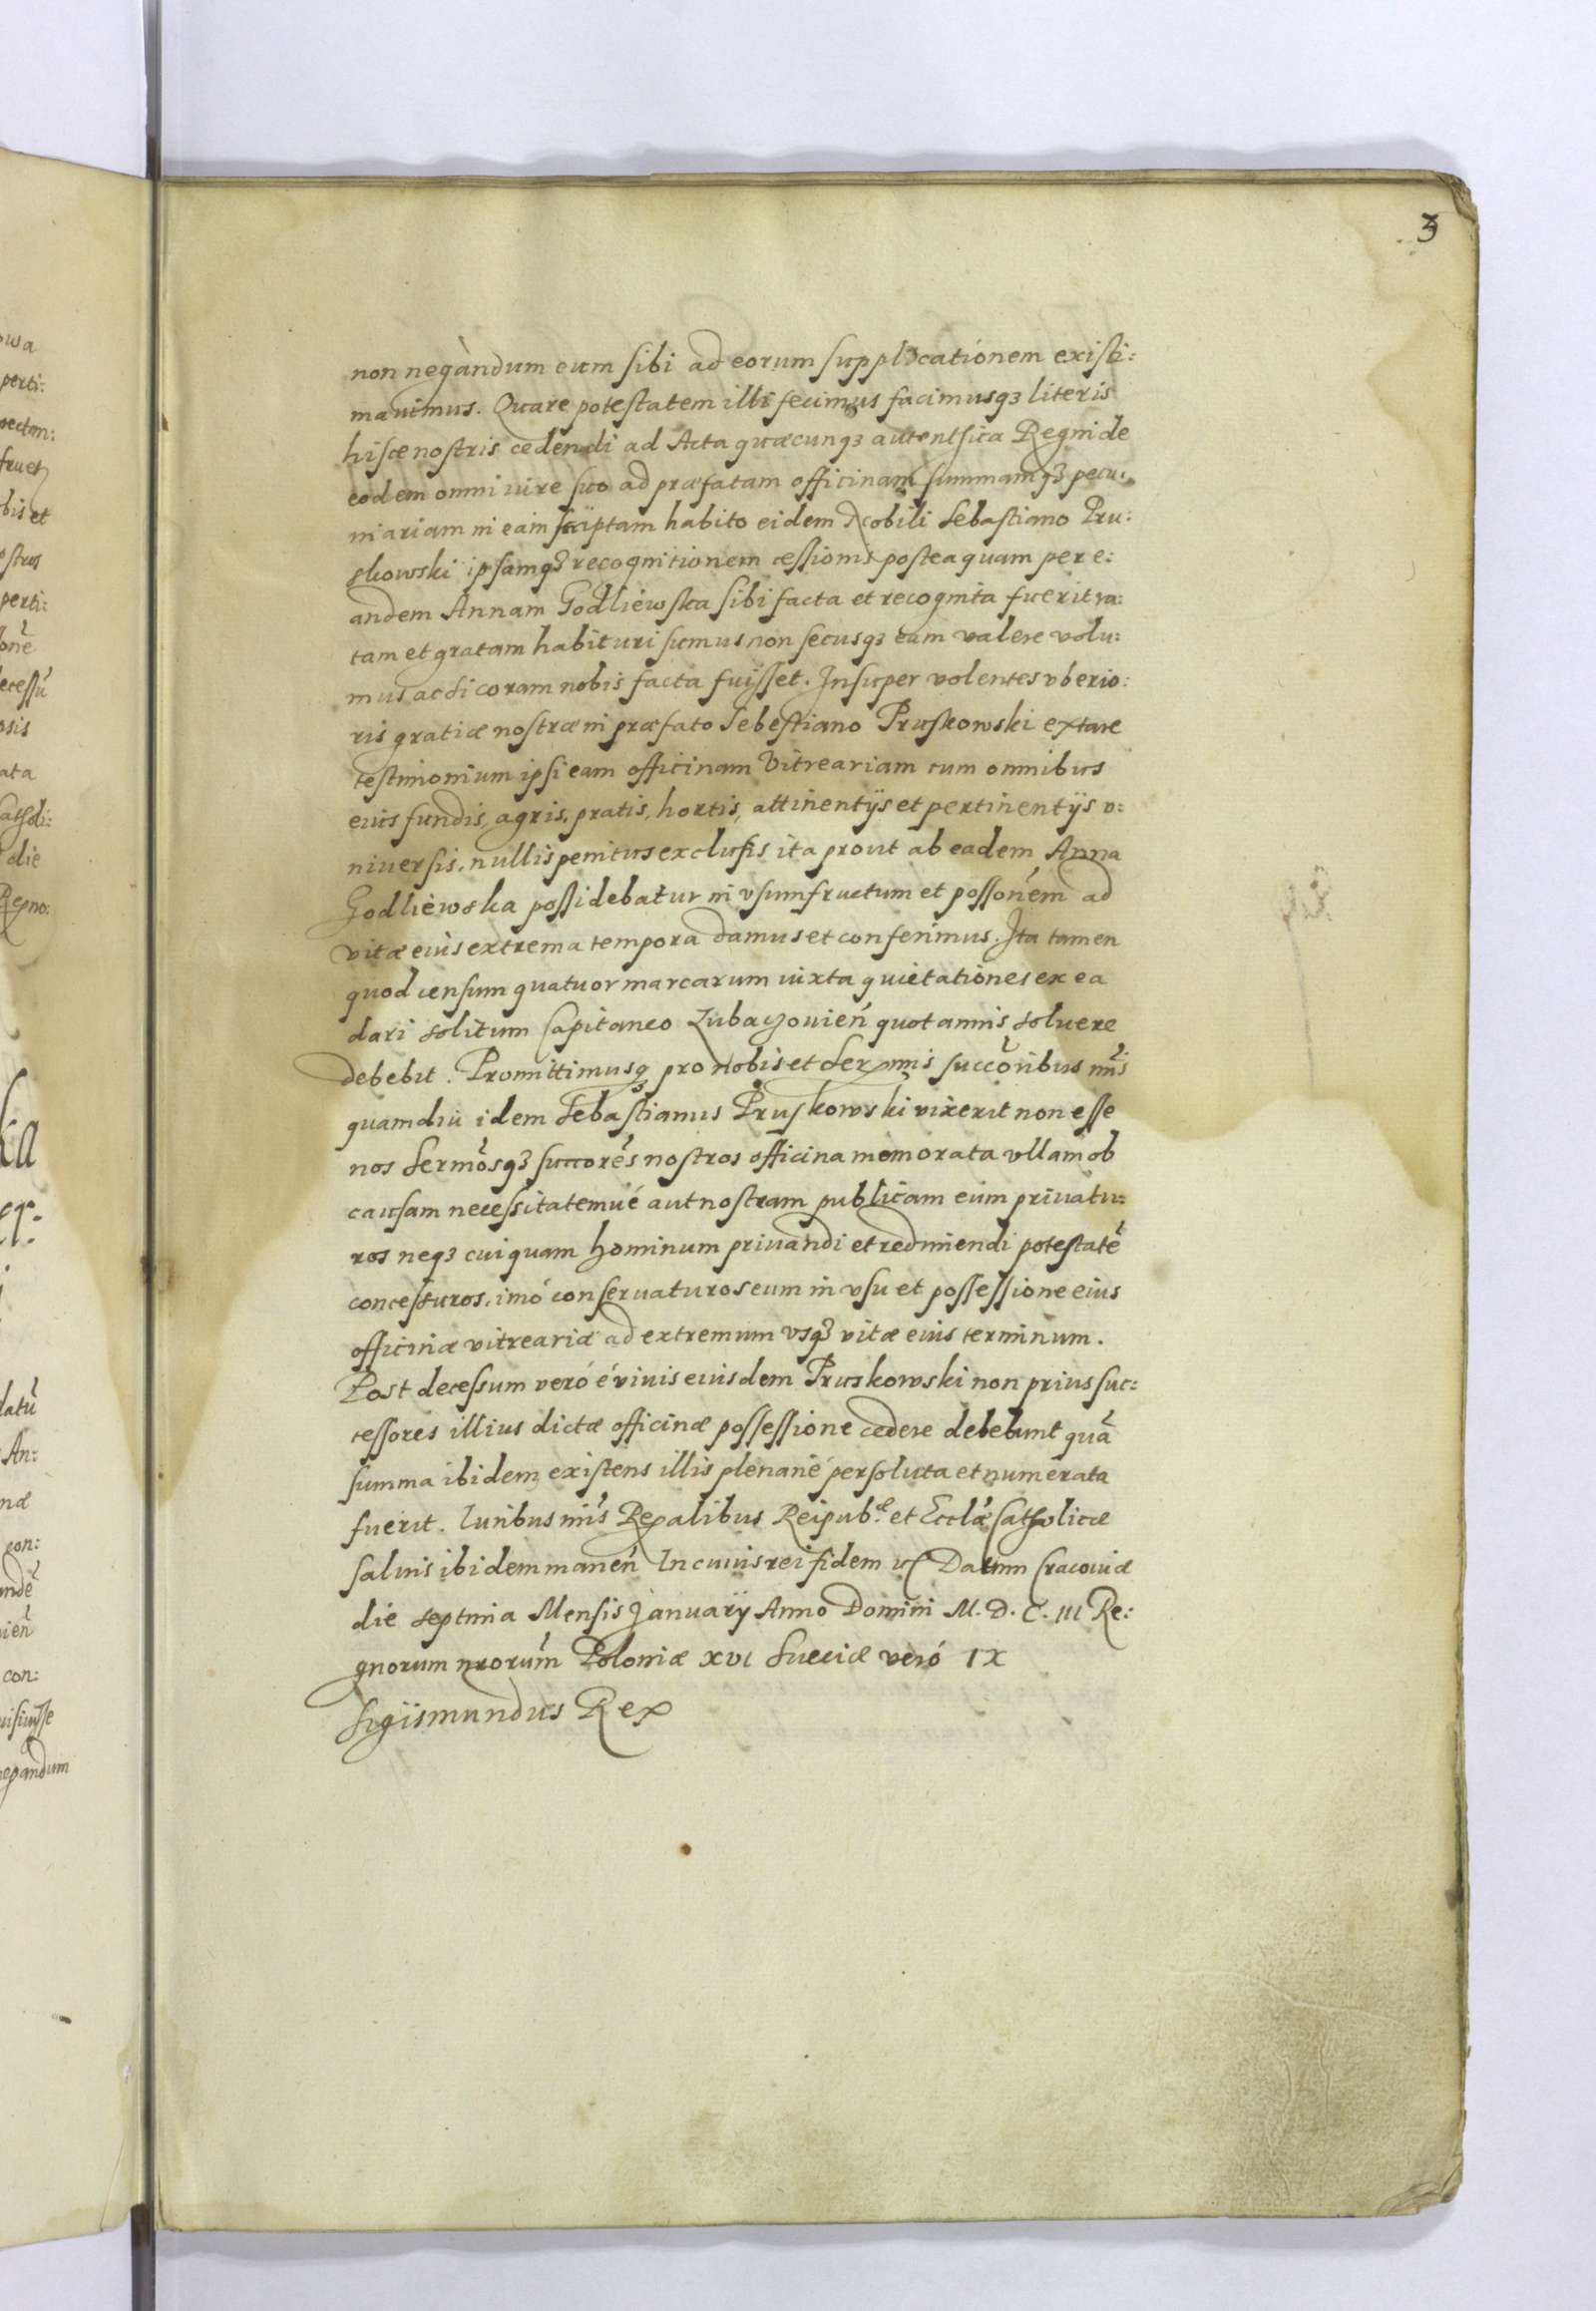 3
non negàndum eum sibi ad eorum supplicationem existi:
mauimus. Quare potestatem illi fecimus facimusq3 literis
hisce nostris cedendi ad Acta quæcunq3 autentica Regni de
eodem omni iure suo ad præfatam officinam summamq3 pecu:
niariam in eam scriptam habito eidem Nobili Sebastiano Pru:
skowski ipsamq3 recognitionem cessionis posteaquam per e:
andem Annam Godliewska sibi facta et recognita fuerit ra:
tam et gratam habituri sumus non secusq3 eam valere volu:
mus ac si coram nobis facta fuisset. Insuper volentes vberio:
ris gratiæ nostræ in præfato Sebestiano Pruskowski extare
testimonium ipsi eam officinam Vitreariam cum omnibus
eius fundis, agris, pratis, hortis, attinentijs et pertinentijs v:
niuersis, nullis penitus exclusis ita prout ab eadem Anna
Godliewska possidebatur in vsumfructum et possonem ad
vitæ eius extrema tempora damus et conferimus. Ita tamen
quod censum quatuor marcarum iuxta quietationes ex ea
dari solitum Capitaneo Lubaczouień quotannis soluere
debebit. Promittimusq3 pro Nobis et Sermis succoribus nris
quamdiu idem Sebastianus Pruskowski vixerit non esse
nos Sermosq3 succores nostros officina memorata vllam ob
causam necessitatemué aut nostram publicam eum priuatu:
ros neq3 cuiquam hominum priuandi et redimendi potestatẽ
concessuros, imó conseruaturos eum in vsu et possessione eius
officinæ vitreariæ ad extremum vsq3 vitæ eius terminum.
Post decessum veró é viuis eiusdem Pruskowski non prius suc:
cessores illius dictæ officinæ possessione cedere debebunt quã
summa ibidem existens illis plenarié persoluta et numerata
fuerit. Iuribus nris Regalibus Reipub.æ et Ecclæ Catholicæ
saluis ibidem manen̄ In cuius rei fidem etc Datum Cracouiæ
die septima Mensis Januarij Anno Domini M. D. C. III Re:
gnorum nrorum Poloniæ XVI Sueciæ veró IX
Sigismundus Rex